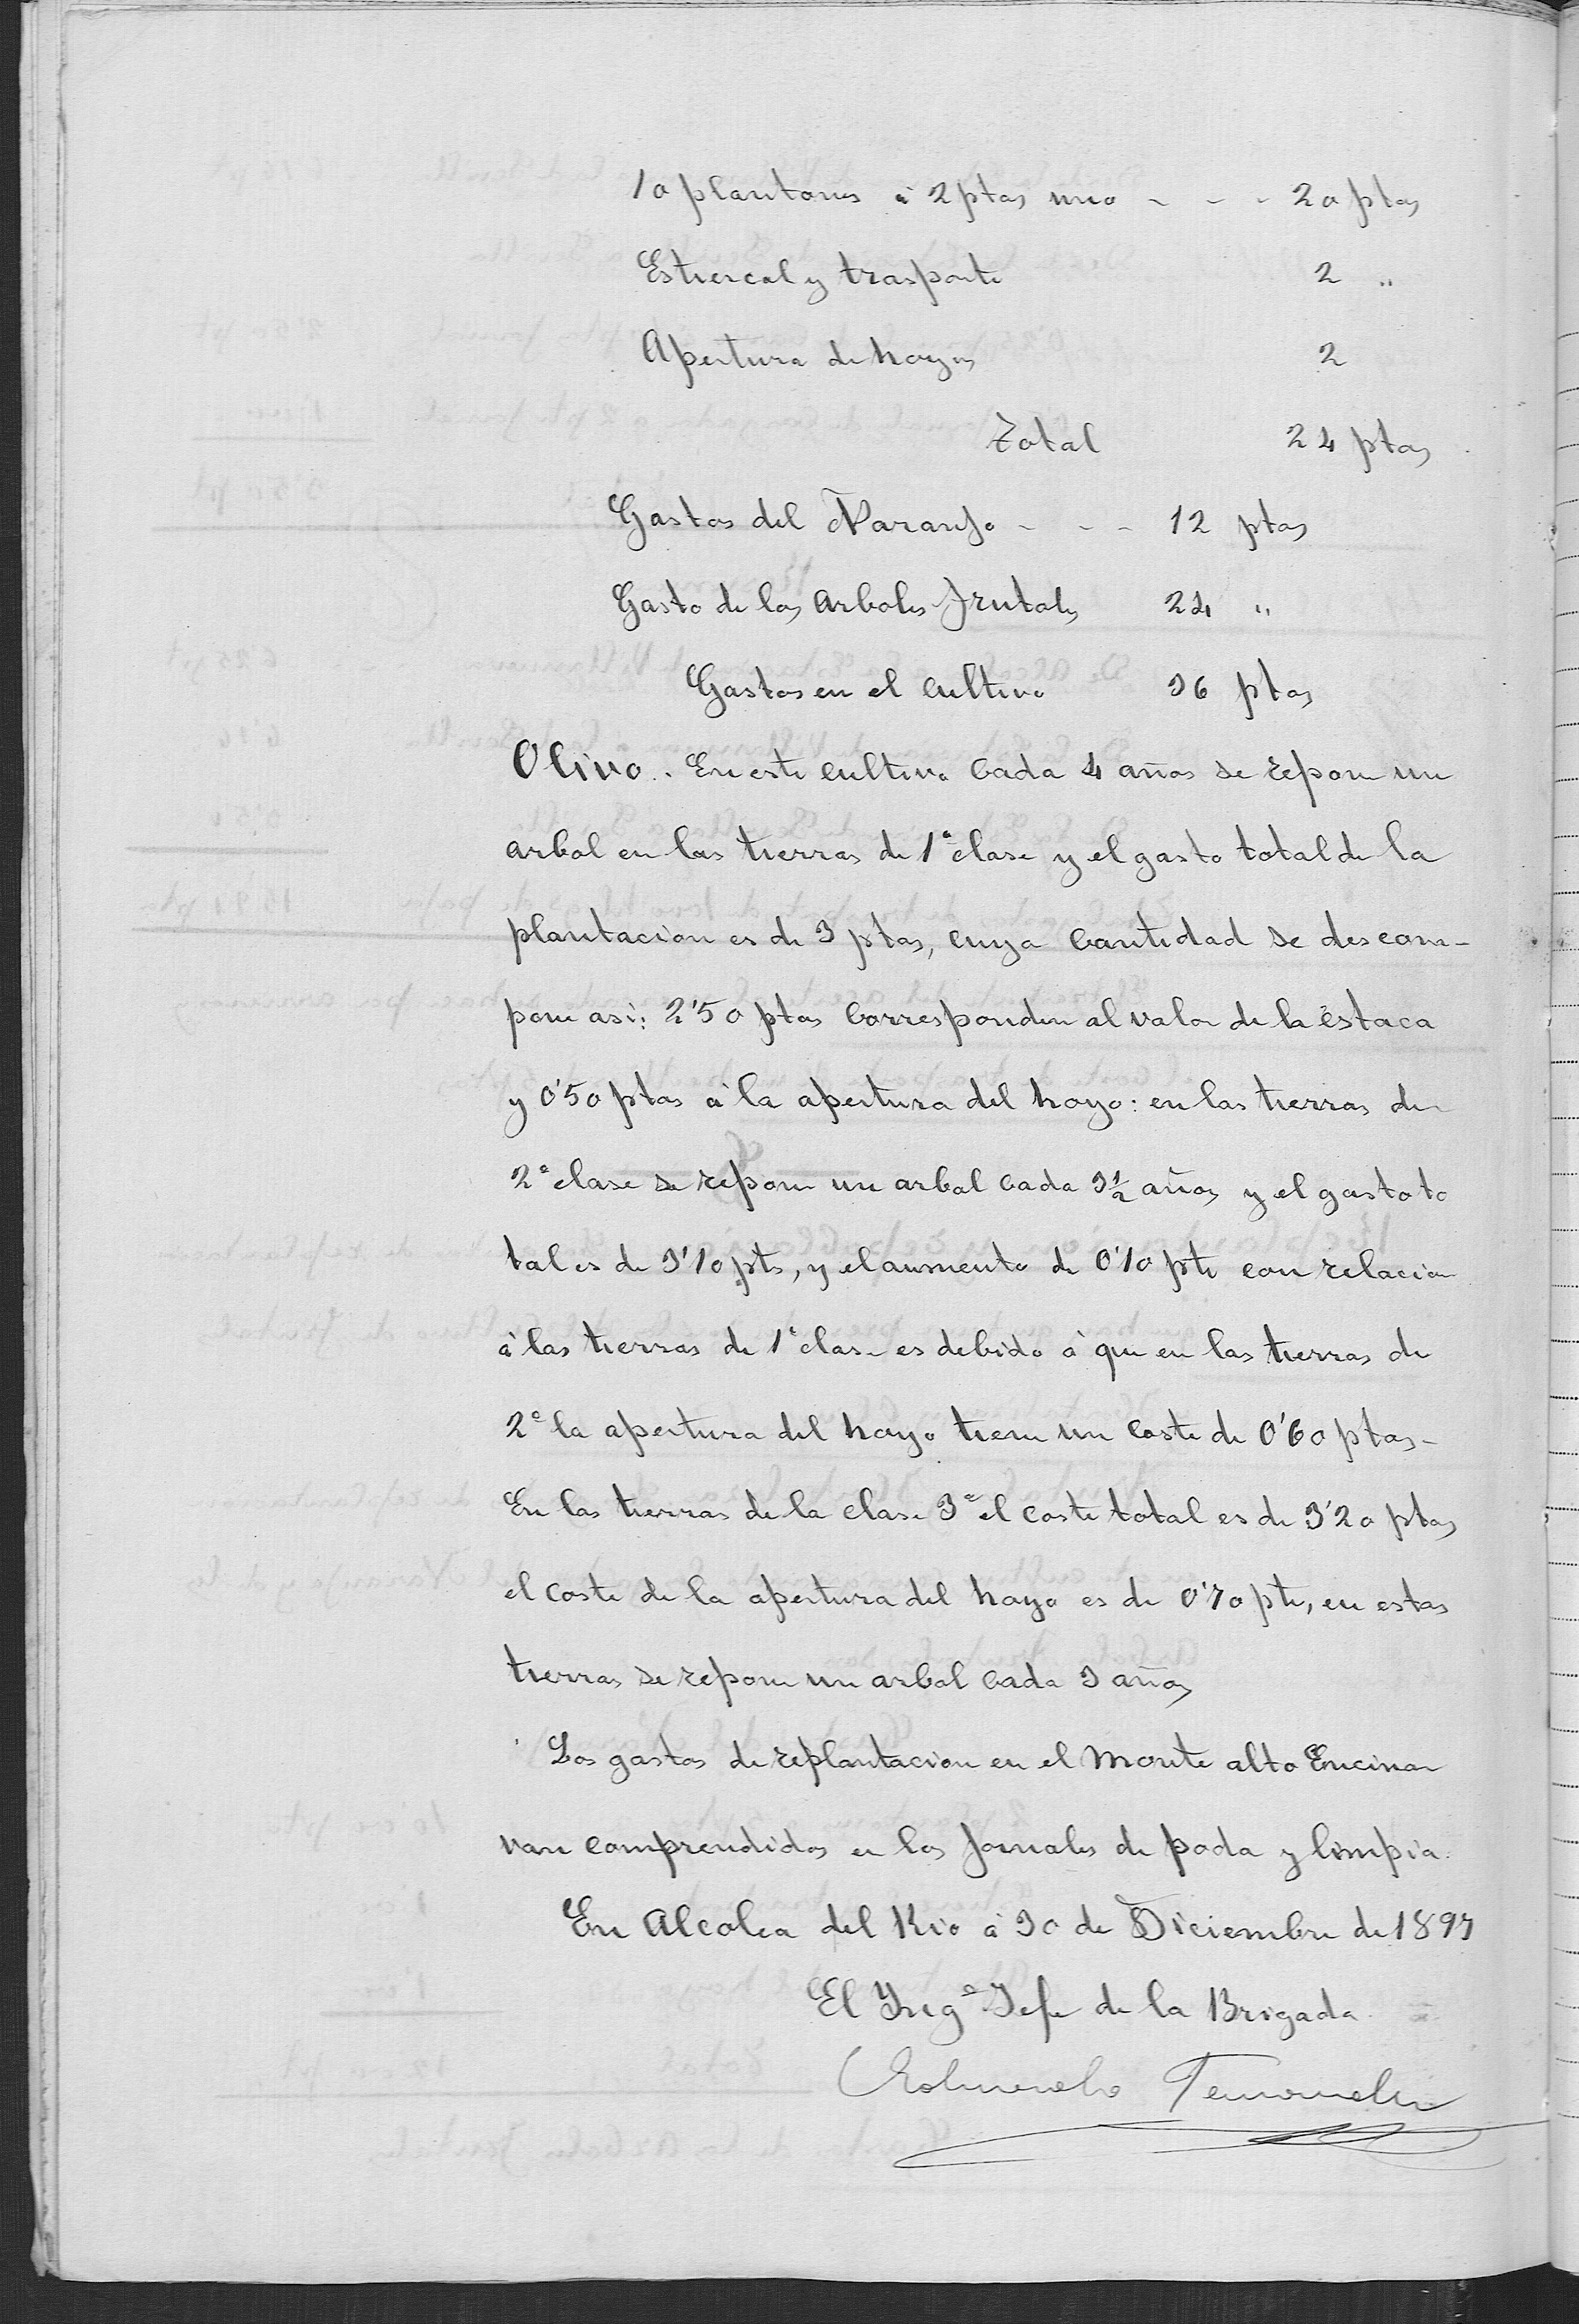 10 plantones à 2 ptas uno - - - 20 ptas
Estiercol y trasporte 2 "
Apertura de hoyos 2
Total 24 ptas
Gastos del Naranjo - - - 12 ptas
Gasto de los arboles frutales 24 "
Gastos en el cultivo 36 ptas
Olivo. En este cultivo cada 4 años se repone un
arbol en las tierras de 1ª clase y el gasto total de la
plantacion es de 3 ptas, cuya cantidad se descom-
pone asi: 2'50 ptas corresponden al valor de la estaca
y 0'50 ptas à la apertura del hoyo: en las tierras de
2ª clase se repone un arbol cada 3 1/2 años y el gasto to
tal es de 3'10 pts, y el aumento de 0'10 pts con relacion
à las tierras de 1ª clase es debido à que en las tierras de
2ª la apertura del hoyo tiene un coste de 0'60 ptas-
En las tierras de la clase 3ª el coste total es de 3'20 ptas
el coste de la apertura del hoyo es de 0'70 pts, en estas
tierras se repone un arbol cada 3 años
Los gastos de replantacion en el Monte alto Encinar
van comprendidos en los Jornales de poda y limpia.
En Alcolea del Rio à 30 de Diciembre de 1897
El Ingº Jefe de la Brigada